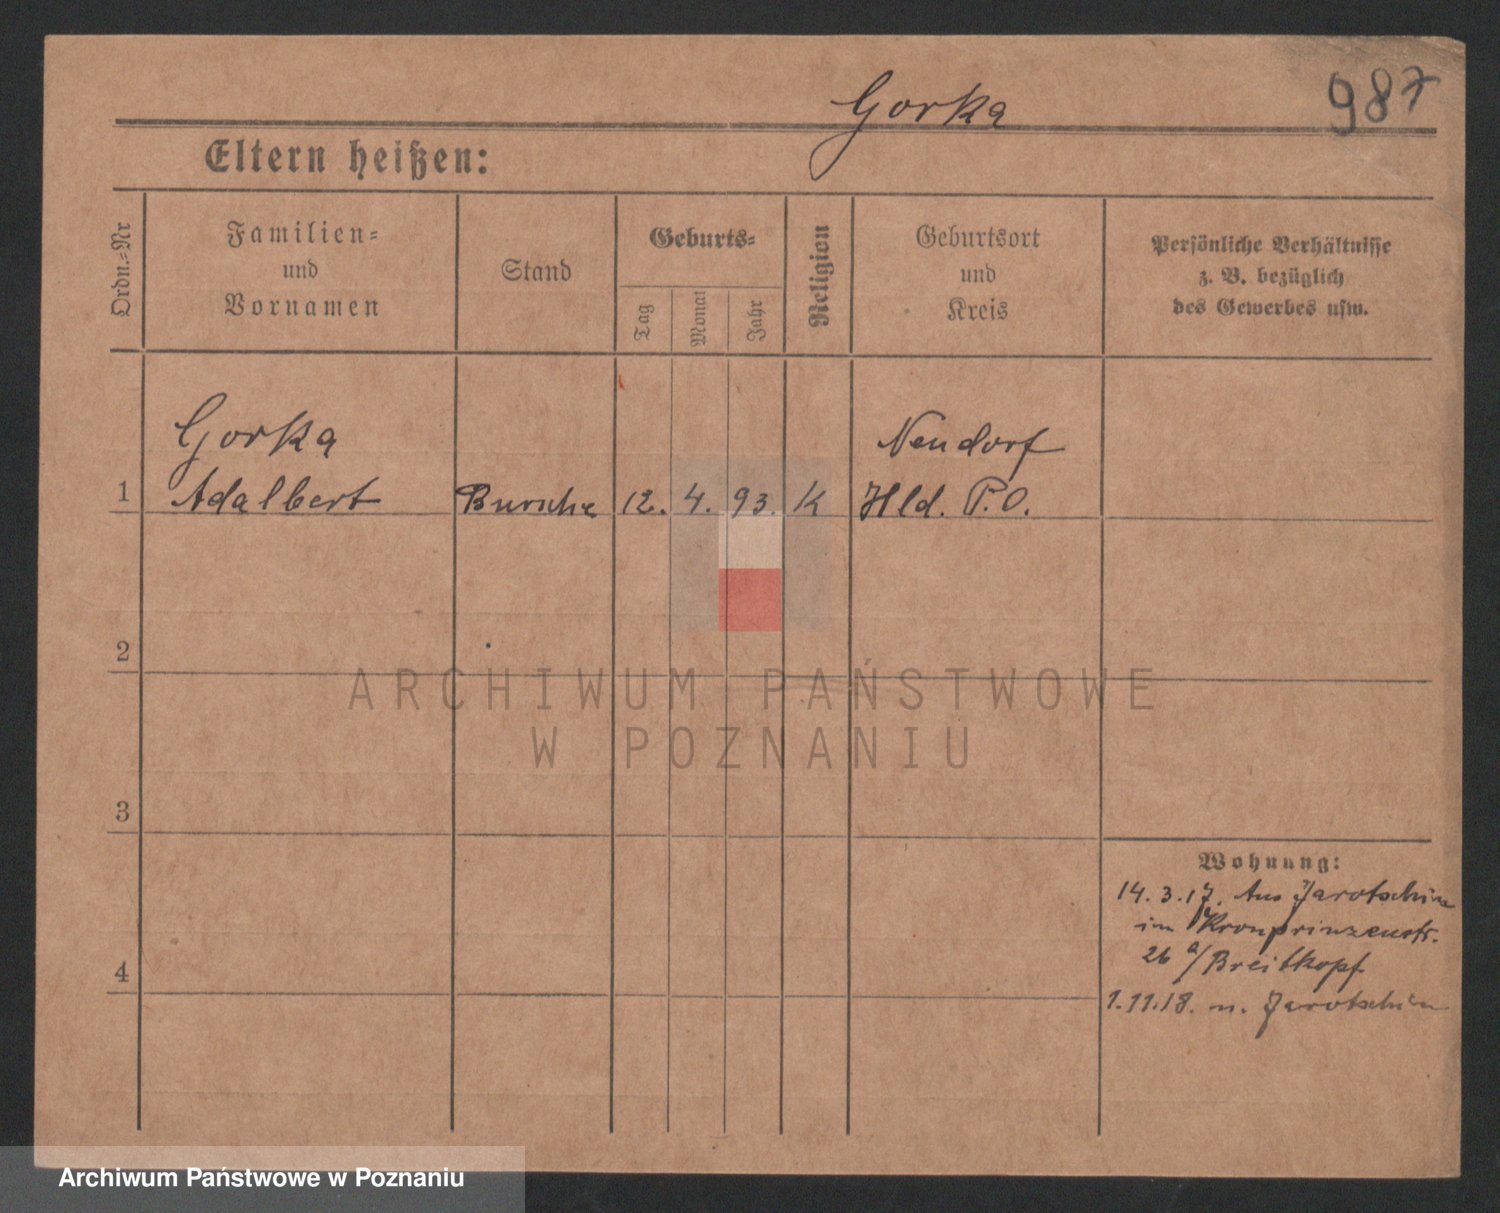 Gorka
987
Eltern heißen:
Ordn.=Nr
Familien=
und
Vornamen
Stand
Geburts=
Tag
Monat
Jahr
Religion
Geburtsort
und
Kreis
Persönliche Verhältnisse
z. B. bezüglich
des Gewerbes usw.
Gorka
Neudorf
1 Adalbert Bursche 12. 4. 93. K Hld. P.O.
2
ARCHIWUM PAŃSTWOWE
W POZNANIU
3
Wohnung:
14. 3. 17. Aus Jarotschin
im Kronprinzenstr.
26 a/ Breitkopf
4
1.11.18. n. Jarotschin
Archiwum Państwowe w Poznaniu